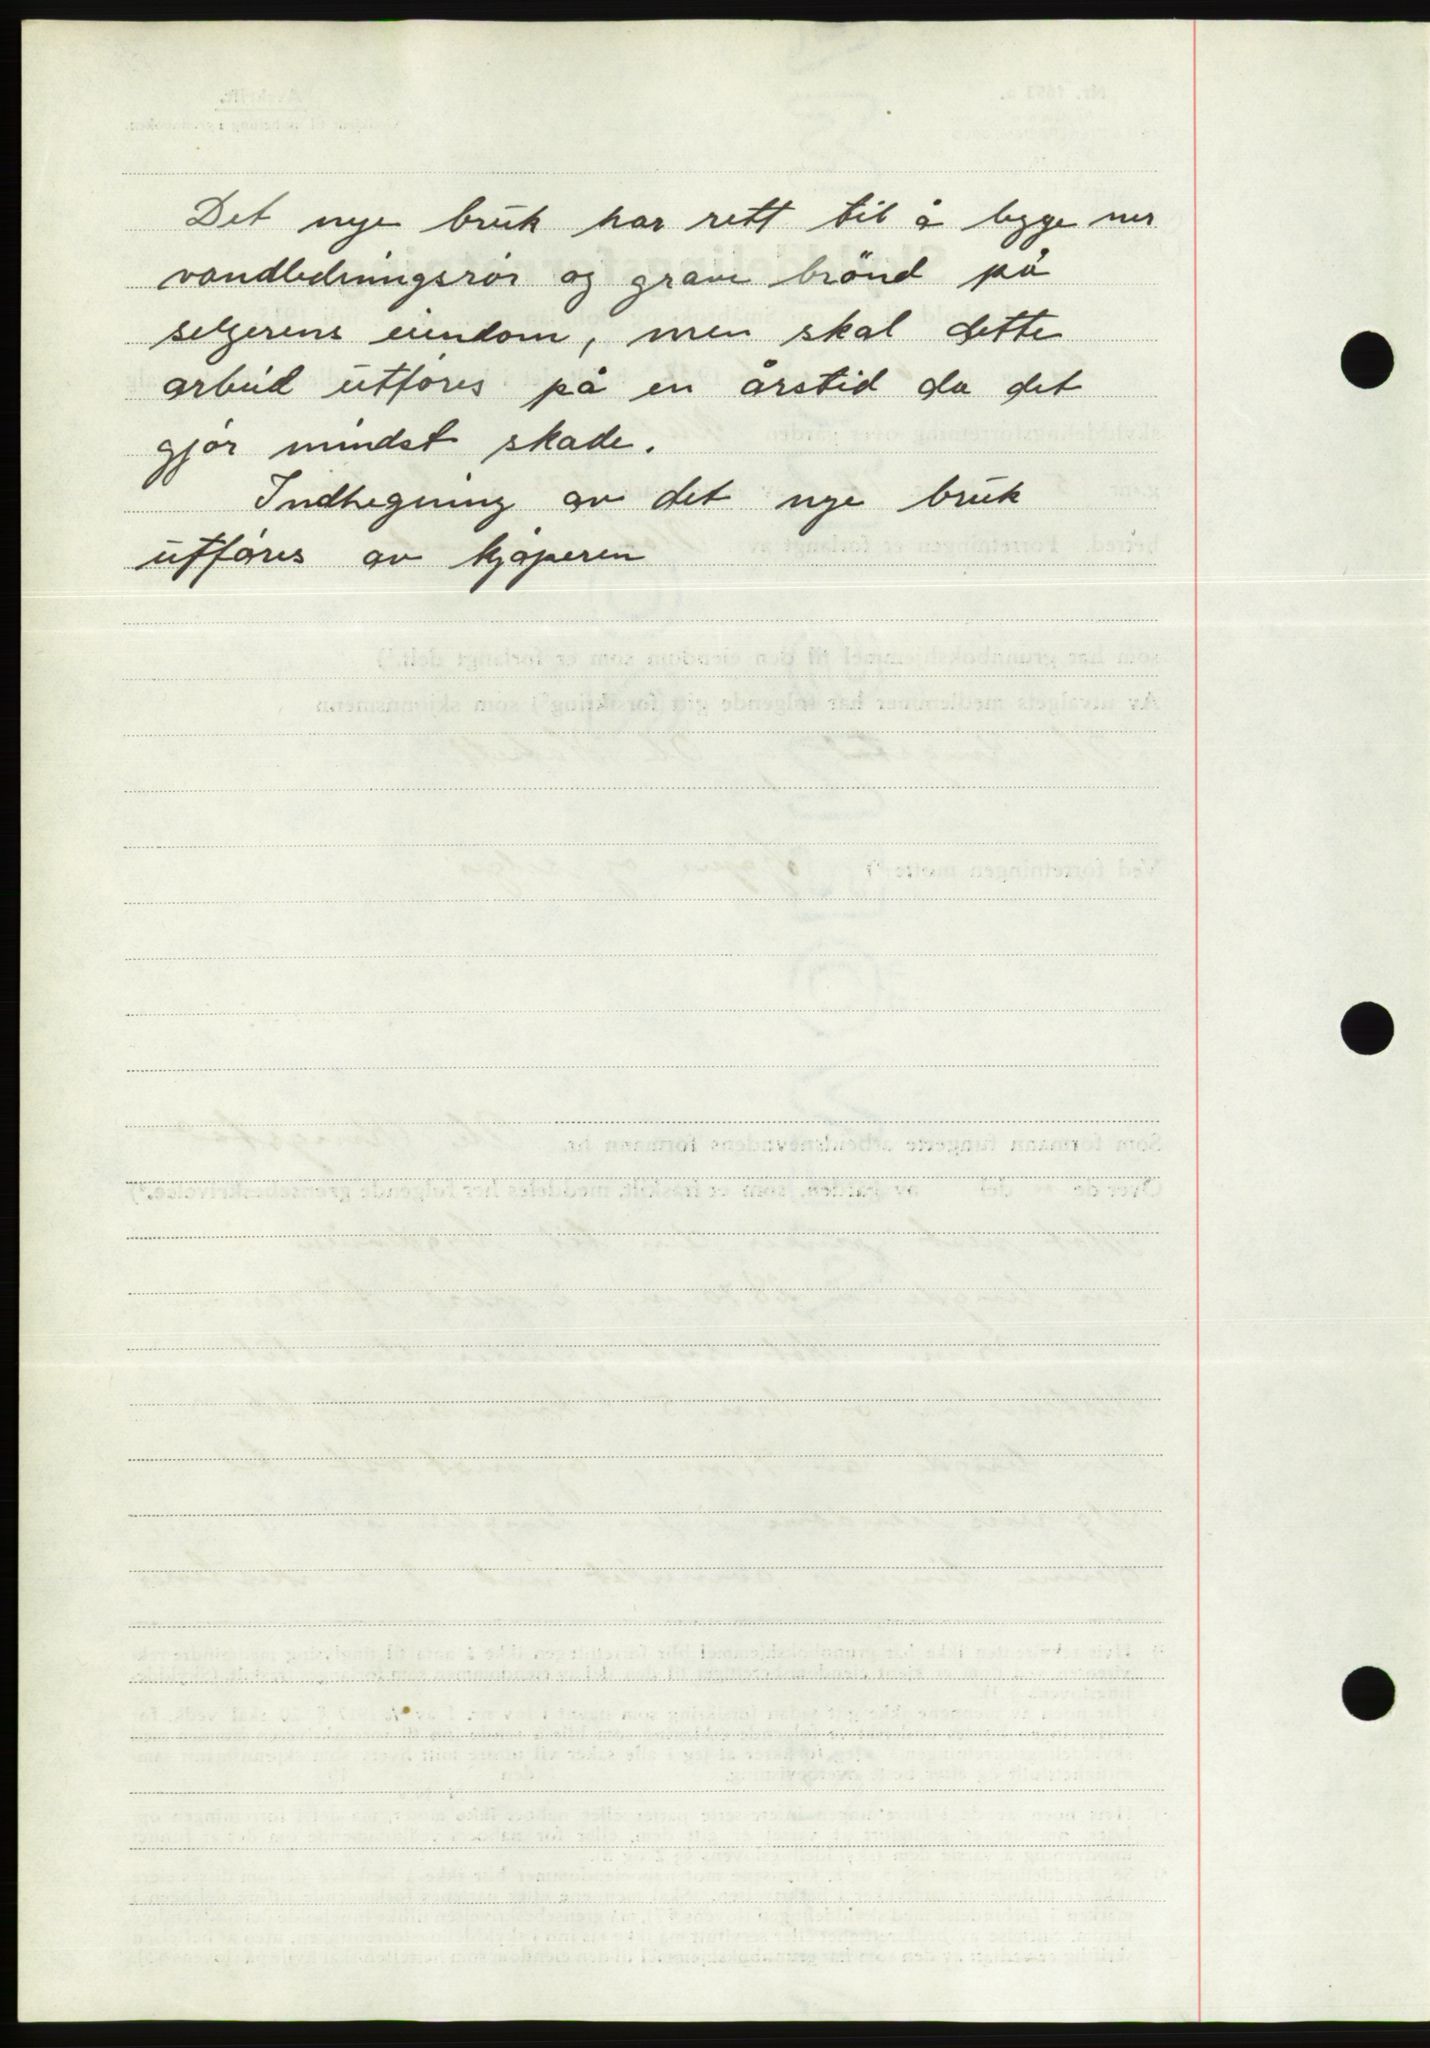 Det nye bruk har rett til å legge ner
vandledningsrör og grave brönd på
selgerens eiendom, men skal dette
arbeid utföres på en årstid da det
gjör mindst skade.
Indhegning av det nye bruk
utföres av kjöperen